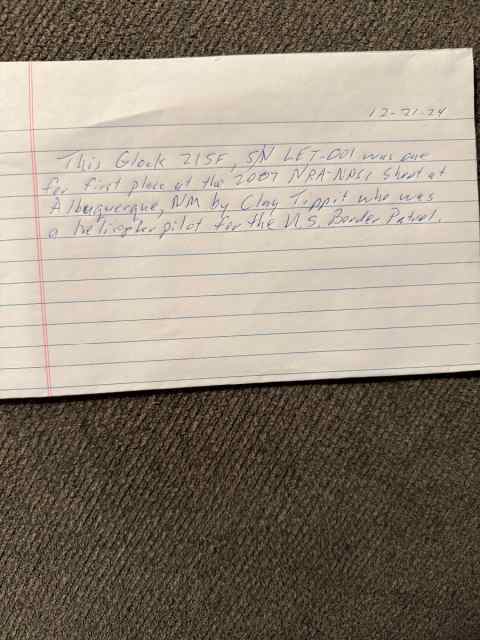 12-21-24
This Glock 21SF, SN LET-001 was one
for first place at the 2007 NRA-NPSC Shoot at
Albuquerque, NM by Clay Tippit who was
a helicopter pilot for the U.S. Border Patrol.